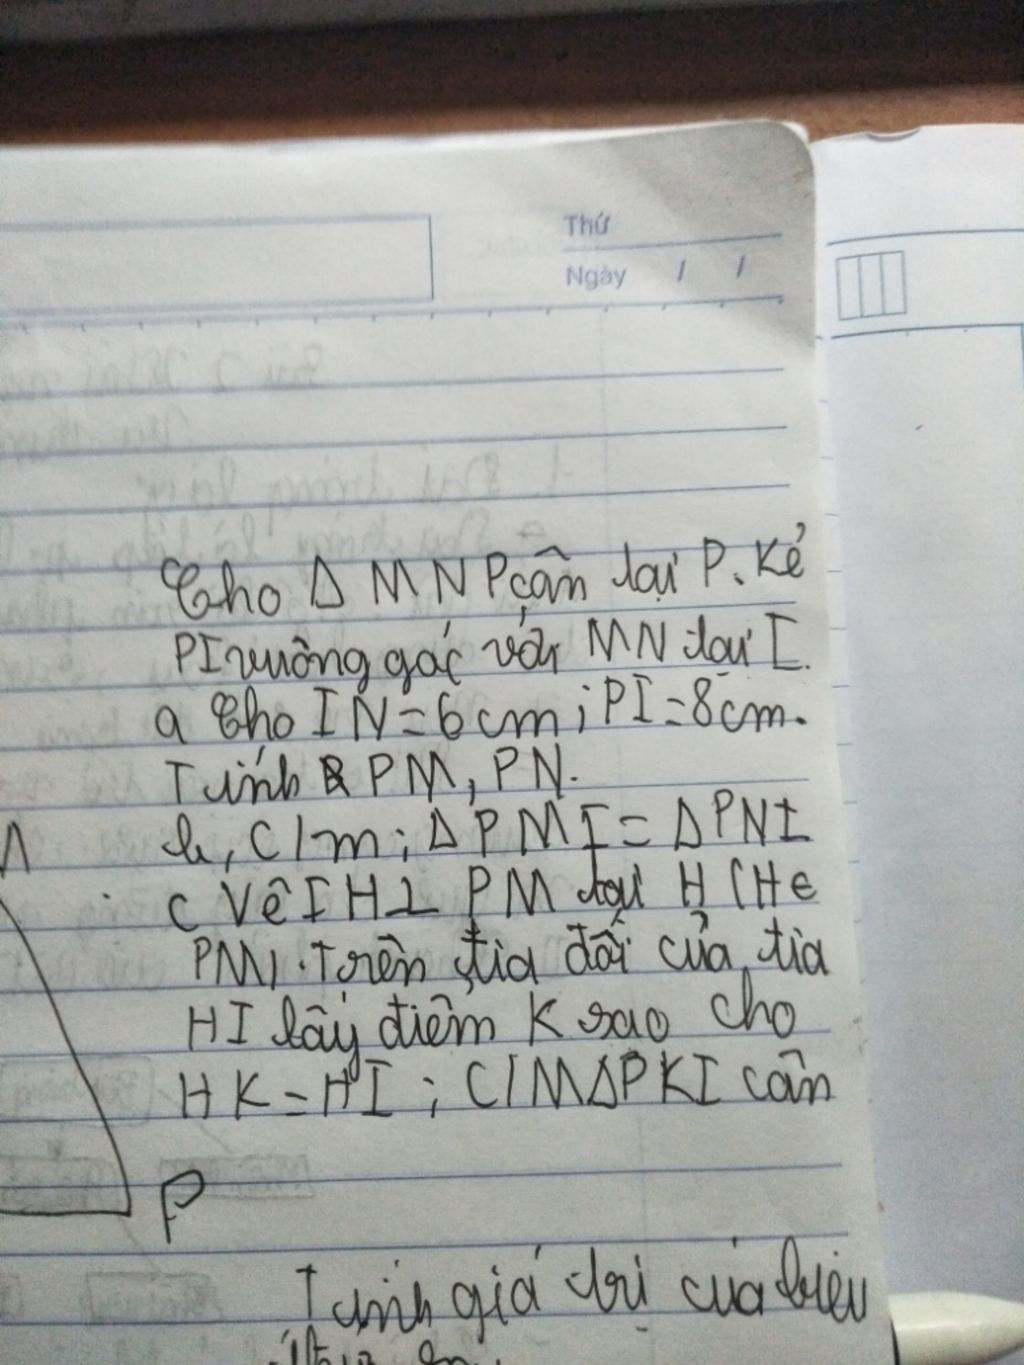 Thứ
Ngày / /
Cho Δ MNP cân tại P. Kẻ
PI vuông góc với MN tại I.
a Cho IN = 6 cm; PI = 8 cm.
Tính PM, PN.
b, C/m; Δ PMI = Δ PNI
c Vẽ IH ⊥ PM tại H (H ∈
PM). Trên tia đối của tia
HI lấy điểm K sao cho
HK = HI; C/M Δ PKI cân
P
Tính giá trị của biểu